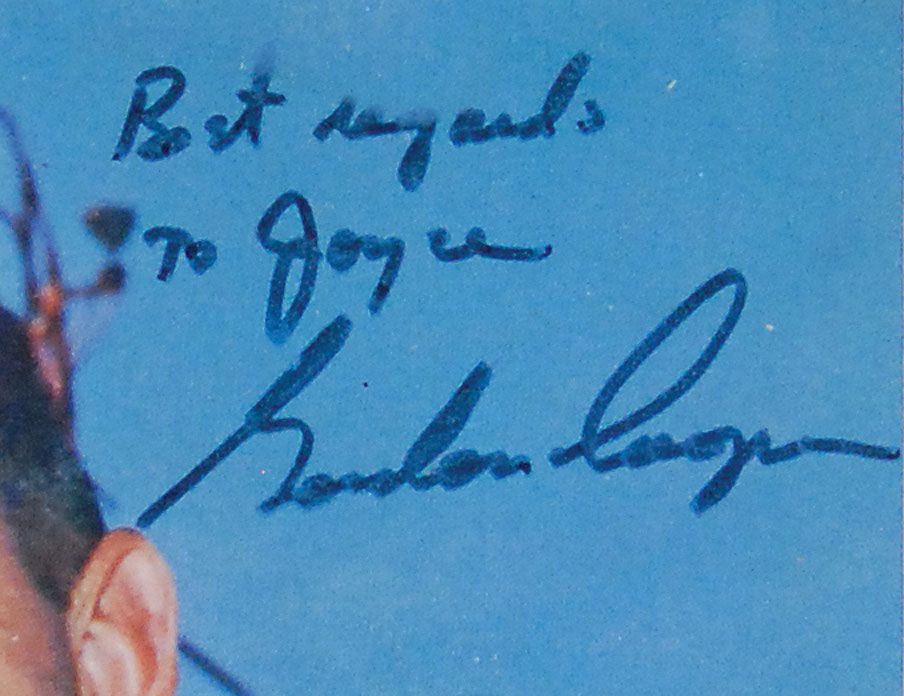 Best regards
To Joyce
Gordon Cooper